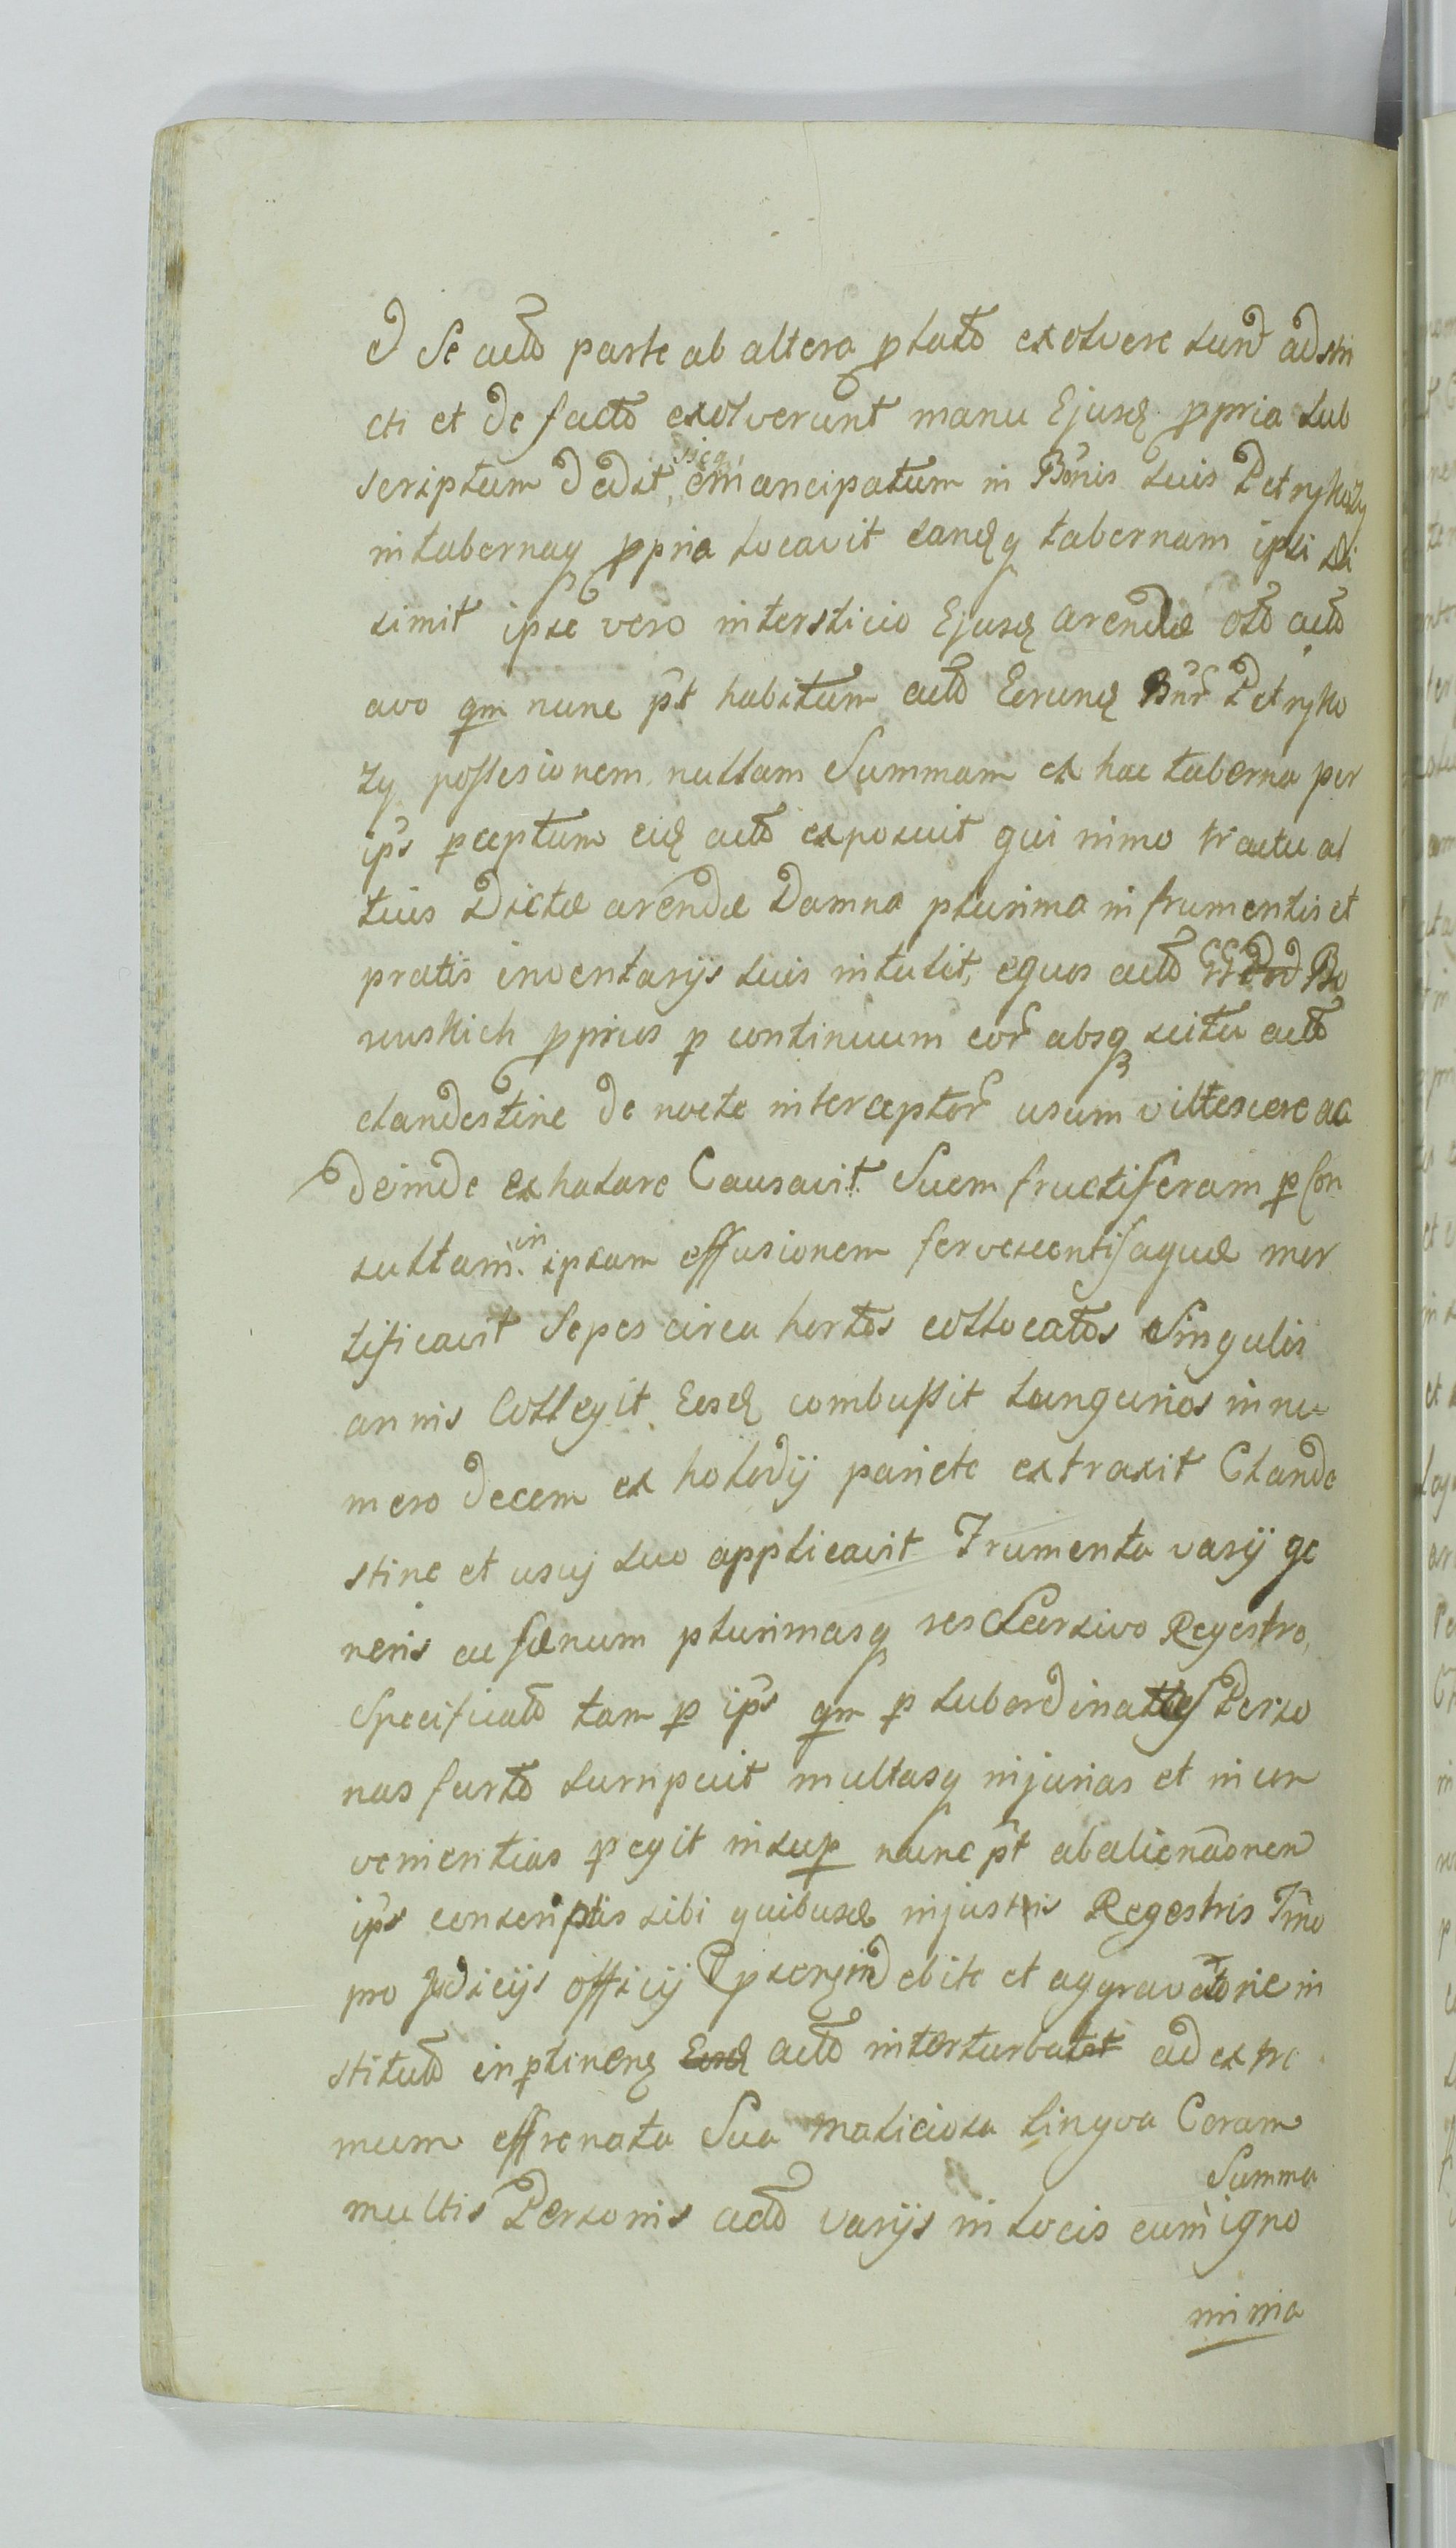 d Se actō parte ab altera p latō exolvere sunt adstri
cti et de facto exolverunt manu Ejusd ppria sub
scriptum dedit, sicq emancipatum in Bonis suis Petrykozy
in tabernaq ppria locavit eandq tabernam ipsi di
simit ipse vero intersticio Ejusd arendæ actō
avo qm nunc pt habitam actō Eorund Bnr Petryko
zy possesionem nullam Summam ex hac taberna per
ips pceptum eid actō exposuit qui nimo tractu al
tius Dictæ arendæ Damna plurima in frumentis et
pratis inventarijs suis intulit, equos actō GG Bo
ruskich pprios p continuum eor absq scitu actō
clandestine de nocte interceptor usum viltescere ac
deinde exhalare Causavit Suem fructiferam p Con
sultam in ipsam effusionem fervescentis aquæ mor
tificavit Sepes circa hortos collocatos Singulis
annis Collegit Eosd combussit Langurios in nu
mero decem ex holodij pariete extraxit Clande
stine et usuj suo applicavit Frumenta varij ge
neris ac fænum plurimasq res Seorsivo Regestro,
Specificatō tam p ips qm p subordinatas Perso
nas furto surripuit multasq injurias et incon
venientias pegit insup nunc pt abalienāonen
ips conscriptis sibi quibusd injustis Regestris Imo
pro Judicijs officij indebite et aggravatorie in
stitutō inptinenq Eosd actō inturturbatt ad extre
mum effrenata Sua maliciosa lingva Coram
multis Personis actō varijs in locis cum Summa igno
minia